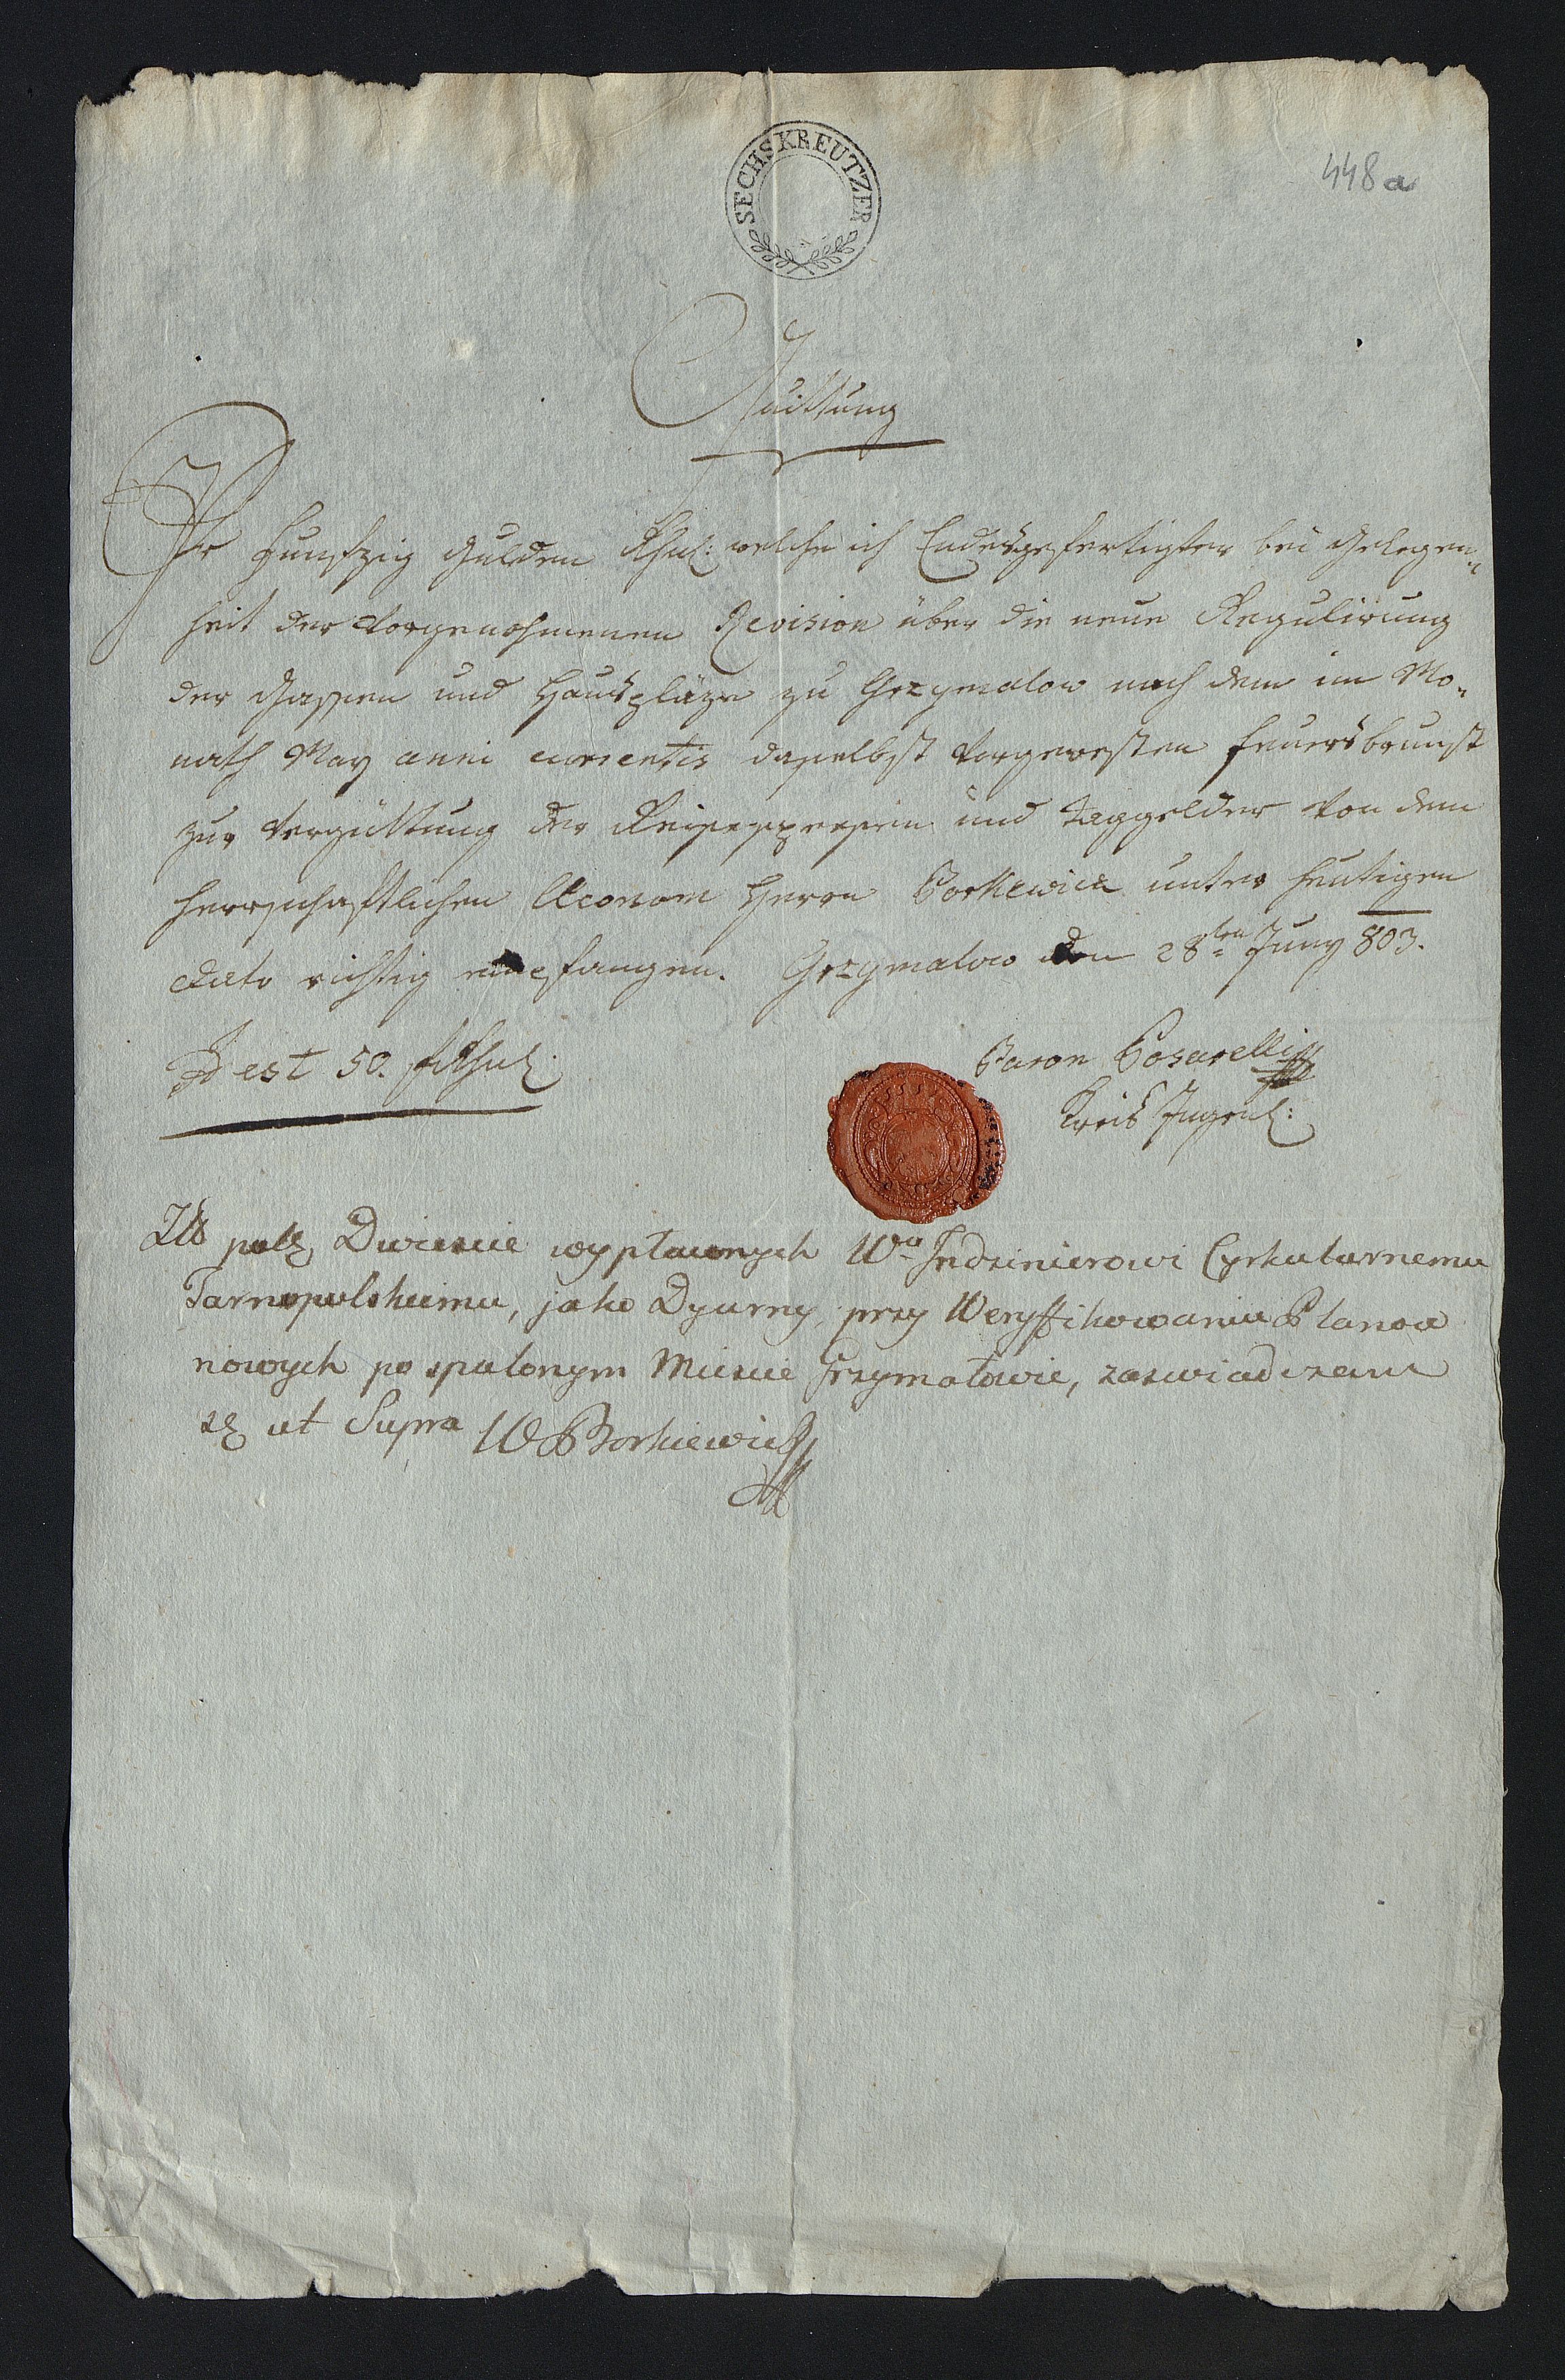 SECHSKREUTZER
448a
Quittung
Pr Funfzig Gulden Rhnl: welche ich Endesgefertigter bei Gelegen-
heit der vorgenohmenen Revision über die neue Regulirung
der Gassen und Hausplätze zu Grzymalow nach dem im Mo-
nath May anni currentis daselbst vorgewesten Feuersbrunst
zur Vergüttung der Reisespeesen und Taggelder von dem
herrschaftlichen Oeconom Herrn Borkewicz unter heutigen
dato richtig empfangen. Grzymalow den 28ten Juny 803.
Id est 50. f Rhnl.
Baron Cosarelli
Kreis Ingen:
Zło pols Dwiescie wypłaconych Wo Indzinierowi Cyrkularnemu
Tarnopolskiemu, jako Dyurny przy Weryffikowaniu Planow
nowych po spalonym Miescie Grzymałowie, zaswiadczam
ut Supra W Borkiewicz